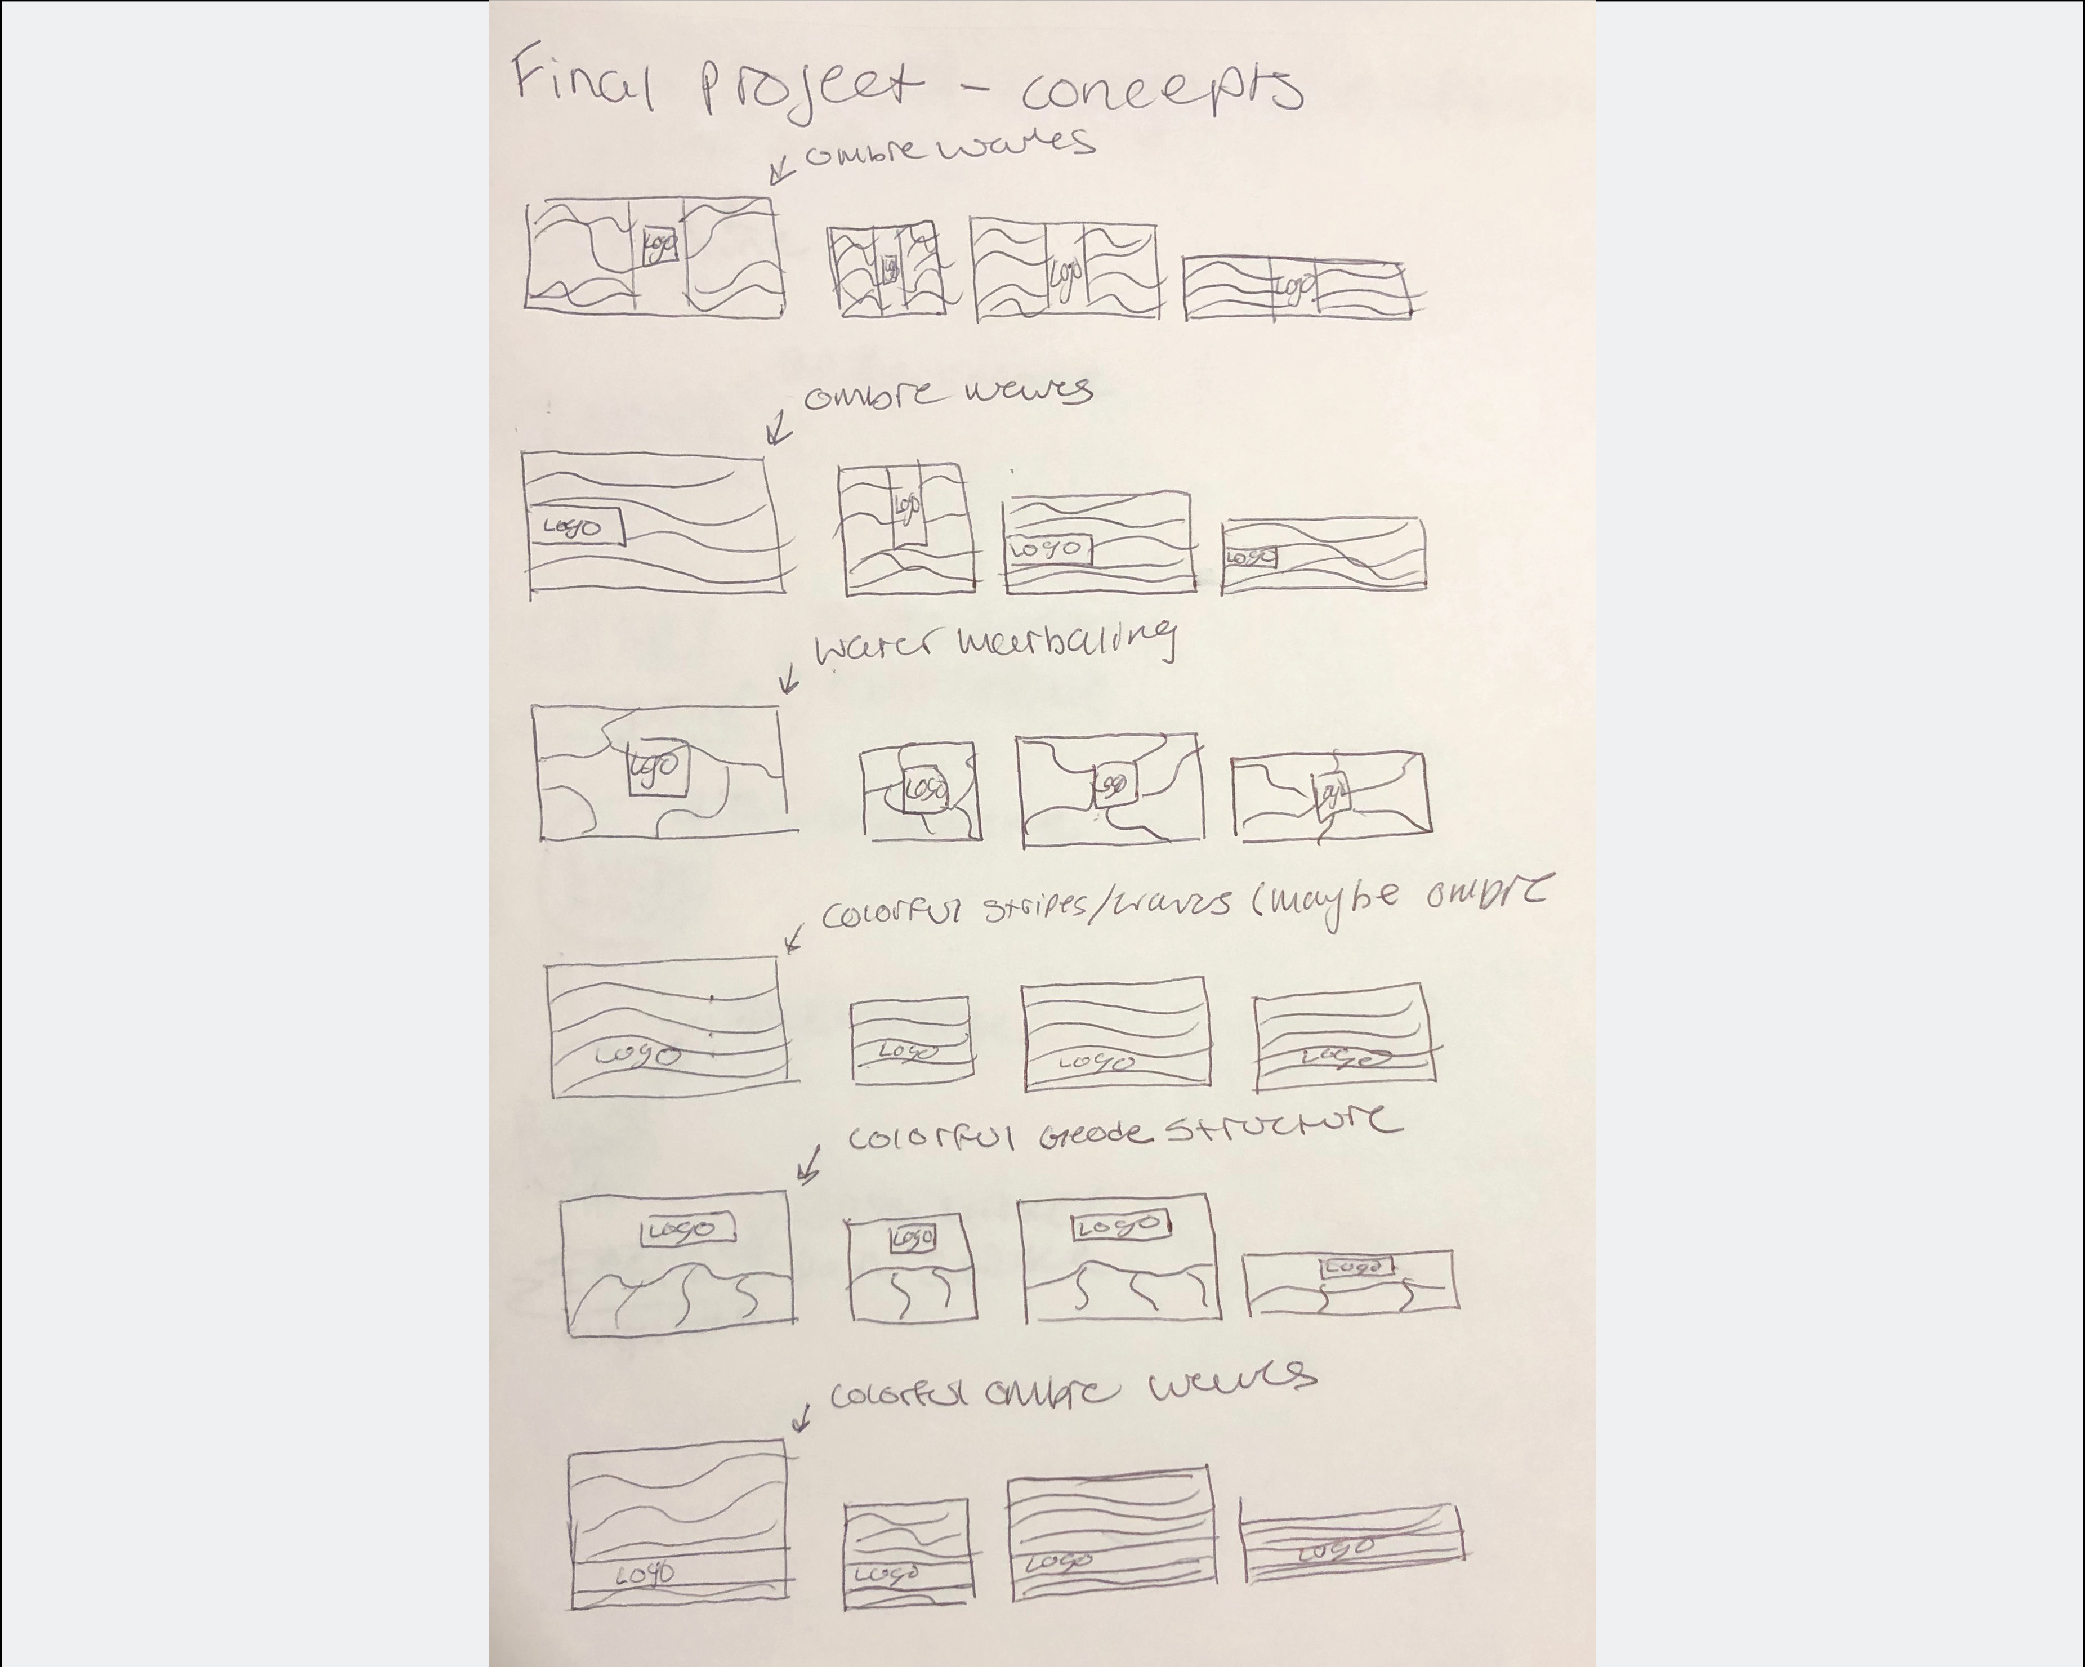 Final project - concepts
ombre waves
Logo Logo Logo Logo
ombre waves
Logo Logo Logo Logo
Water Marbaling
Logo Logo Logo Logo
colorful stripes/waves (maybe ombre
Logo Logo Logo Logo
colorful Geode structure
Logo Logo Logo Logo
colorful ombre waves
Logo Logo Logo Logo